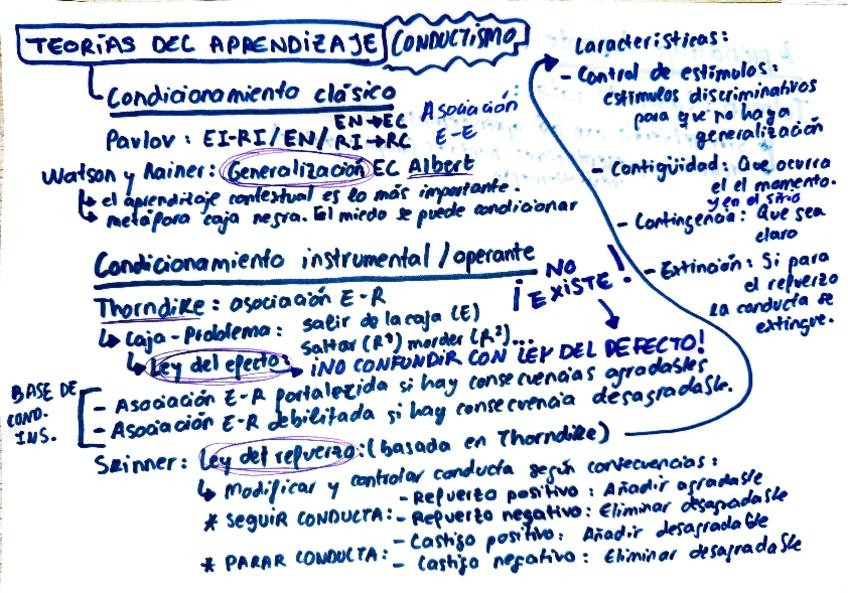 TEORÍAS DEL APRENDIZAJE CONDUCTISMO
Condicionamiento clásico
EN→EC
Pavlov: EI-RI/EN/RI→RC
Asociación
E-E
Watson y Rainer: Generalización EC Albert
↳ el aprendizaje contextual es lo más importante.
↳ metáfora caja negra. El miedo se puede condicionar
Condicionamiento instrumental/operante
Thorndike: asociación E-R
↳ Caja-Problema: salir de la caja (E)
saltar (R¹) morder (R²)...
¡NO EXISTE!
↳ Ley del efecto: ¡NO CONFUNDIR CON LEY DEL DEFECTO!
BASE DE
COND.
INS.
- Asociación E-R fortalezida si hay consecuencias agradables
- Asociación E-R debilitada si hay consecuencia desagradable.
Skinner: Ley del refuerzo: (basada en Thorndike)
↳ Modificar y controlar conducta según consecuencias:
* SEGUIR CONDUCTA: - Refuerzo positivo: Añadir agradable
- Refuerzo negativo: Eliminar desagradable
* PARAR CONDUCTA: - Castigo positivo: Añadir desagradable
- Castigo negativo: Eliminar desagradable
Características:
- Control de estímulos:
estímulos discriminativos
para que no haya
generalización
- Contigüidad: Que ocurra
el el momento.
y en el sitio
- Contingencia: Que sea
claro
- Extinción: Si para
el refuerzo
la conducta se
extingue.